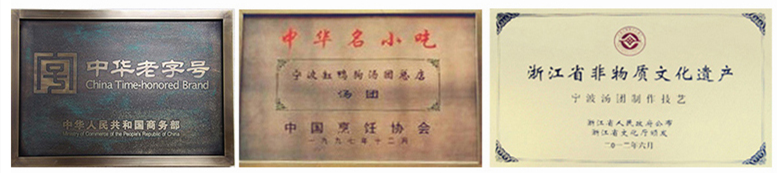 中华老字号
China Time-honored Brand
中华人民共和国商务部
Ministry of Commerce of the People's Republic of China
中华名小吃
宁波缸鸭狗汤团总店
汤团
中国烹饪协会
一九九七年十二月
浙江省非物质文化遗产
宁波汤团制作技艺
浙江省人民政府公布
浙江省文化厅颁发
二〇一二年六月